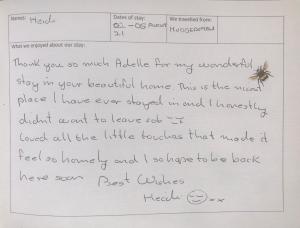 Name(s): Heidi
Dates of stay: 02 - 05 August 21
We travelled from: Huddersfield
What we enjoyed about our stay:
Thank you so much Adelle for my wonderful
stay in your beautiful home. This is the nicest
place I have ever stayed in and I honestly
didnt want to leave sob
Loved all the little touches that made it
feel so homely and I so hope to be back
here soon Best Wishes
Heidi xx